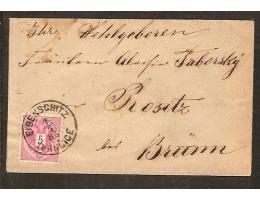 Ihr Wohlgeboren
Fräulein Taberský
in
Rositz
bei
Brünn
EIBENSCHITZ
IVANČICE
5